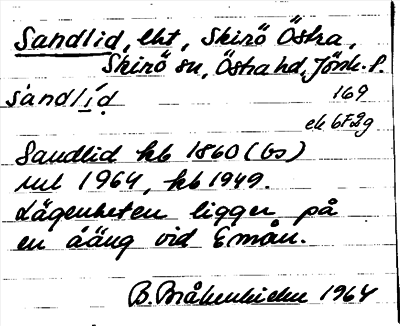 Sandlid, lht, Skirö Östra,
Skirö sn, Östra hd, Jönk. l.
sandlíd 169
ek 6F2g
Sandlid kb 1860 (bs)
uul 1964, kb 1949.
Lägenheten ligger på
en åäng vid Emån.
B. 1964